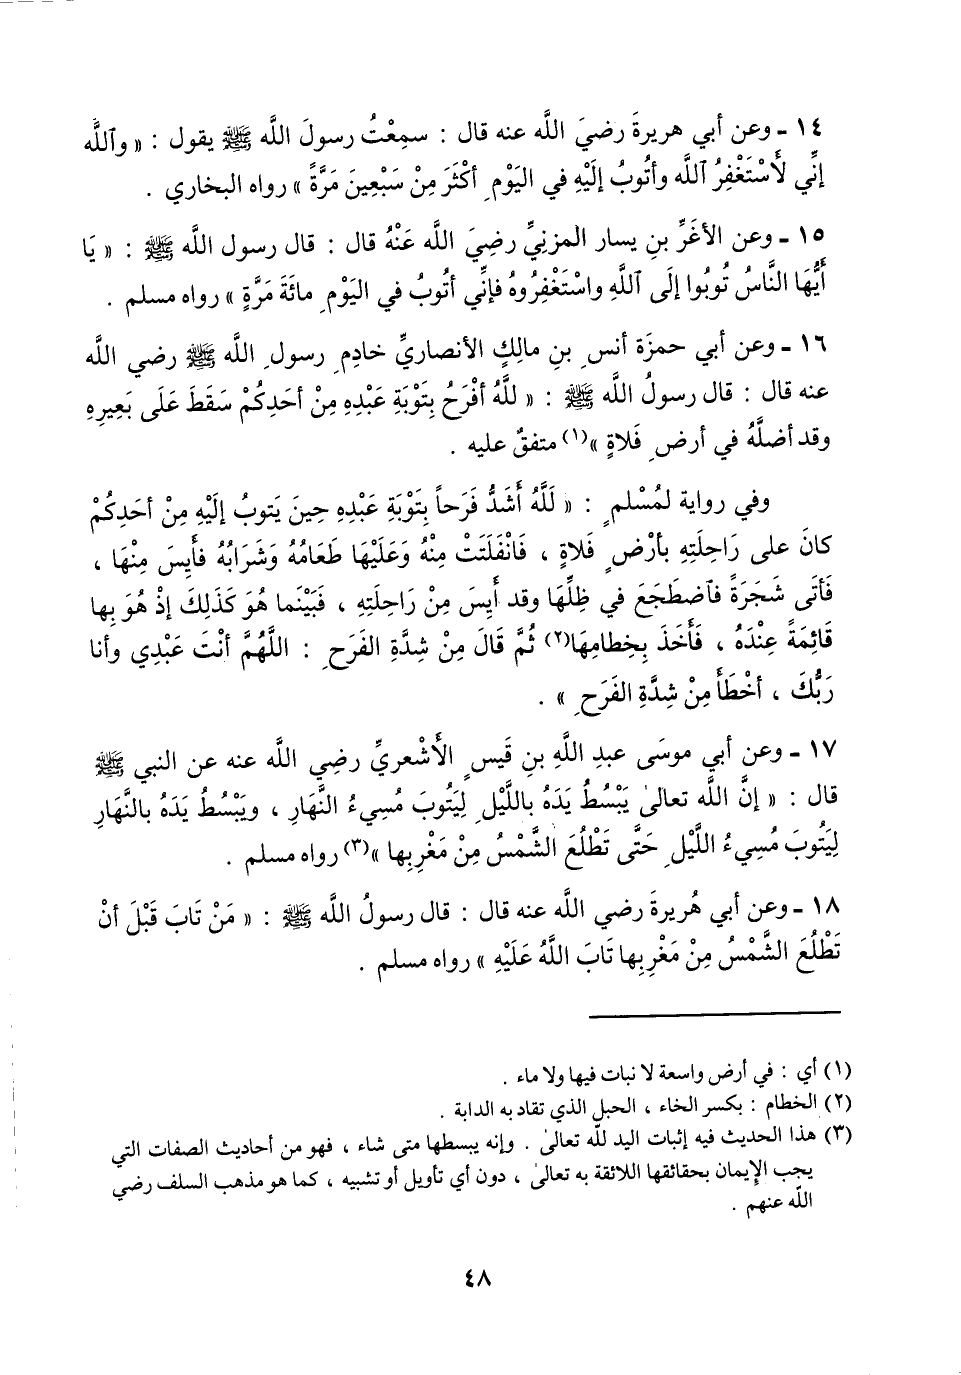 ١٤ - وعن أبي هريرةَ رضيَ اللَّه عنه قال : سمِعْتُ رسولَ اللَّه ﷺ يقول : « وٱللَّه
إنِّي لَأسْتَغْفِرُ ٱللَّه وأتُوبُ إلَيْهِ في اليَوْمِ أكْثَرَ مِنْ سَبْعِينَ مَرَّةً » رواه البخاري .
١٥ - وعن الأغَرِّ بنِ يسار المزنِيِّ رضِيَ اللَّه عَنْهُ قال : قال رسول اللَّه ﷺ : « يَا
أَيُّهَا النَّاسُ تُوبُوا إلَى ٱللَّهِ واسْتَغْفِرُوهُ فإنِّي أتُوبُ في اليَوْمِ مائَةَ مَرَّةٍ » رواه مسلم .
١٦ - وعن أبي حمزَة أنسِ بنِ مالِكٍ الأنصاريِّ خادِمِ رسولِ اللَّه ﷺ رضي اللَّه
عنه قال : قال رسولُ اللَّه ﷺ : « للَّهُ أفْرَحُ بِتَوْبَةِ عَبْدِهِ مِنْ أحَدِكُمْ سَقَطَ عَلَى بَعِيرِهِ
وقد أضلَّهُ في أرضِ فَلاةٍ »(١) متفقٌ عليه .
وفي رواية لمُسْلمٍ : « لَلَّهُ أَشَدُّ فَرَحاً بِتَوْبَةِ عَبْدِهِ حِينَ يَتوبُ إلَيْهِ مِنْ أحَدِكُمْ
كانَ على رَاحِلَتِهِ بأرْضٍ فَلاةٍ ، فَانْفَلَتَتْ مِنْهُ وَعَلَيْهَا طَعَامُهُ وَشَرَابُهُ فأيِسَ مِنْهَا ،
فَأتَى شَجَرَةً فٱضطَجَعَ في ظِلِّهَا وقد أَيِسَ مِنْ رَاحِلَتِهِ ، فَبَيْنَما هُوَ كَذَلِكَ إذْ هُوَ بِها
قَائِمَةً عِنْدَهُ ، فَأَخَذَ بِخِطامِهَا(٢) ثُمَّ قَالَ مِنْ شِدَّةِ الفَرَحِ : اللَّهُمَّ أنْتَ عَبْدِي وأنا
رَبُّكَ ، أخْطَأَ مِنْ شِدَّةِ الفَرَحِ » .
١٧ - وعن أبي موسَى عبدِ اللَّهِ بنِ قَيسٍ الأَشْعريِّ رضِي اللَّه عنه عن النبي ﷺ
قال : « إنَّ اللَّه تعالىٰ يَبْسُطُ يَدَهُ باللَّيْلِ لِيَتُوبَ مُسِيءُ النَّهَارِ ، ويَبْسُطُ يَدَهُ بالنَّهَارِ
لِيَتُوبَ مُسِيءُ اللَّيْلِ حَتَّى تَطْلُعَ الشَّمْسُ مِنْ مَغْرِبِها »(٣) رواه مسلم .
١٨ - وعن أبي هُريرةَ رضي اللَّه عنه قال : قال رسولُ اللَّه ﷺ : « مَنْ تَابَ قَبْلَ أنْ
تَطْلُعَ الشَّمْسُ مِنْ مَغْرِبِها تَابَ اللَّهُ عَلَيْهِ » رواه مسلم .
(١) أي : في أرض واسعة لا نبات فيها ولا ماء .
(٢) الخطام : بكسر الخاء ، الحبل الذي تقاد به الدابة .
(٣) هذا الحديث فيه إثبات اليد للّه تعالىٰ . وإنه يبسطها متى شاء ، فهو من أحاديث الصفات التي
يجب الإيمان بحقائقها اللائقة به تعالىٰ ، دون أي تأويل أو تشبيه ، كما هو مذهب السلف رضي
اللّه عنهم .
٤٨